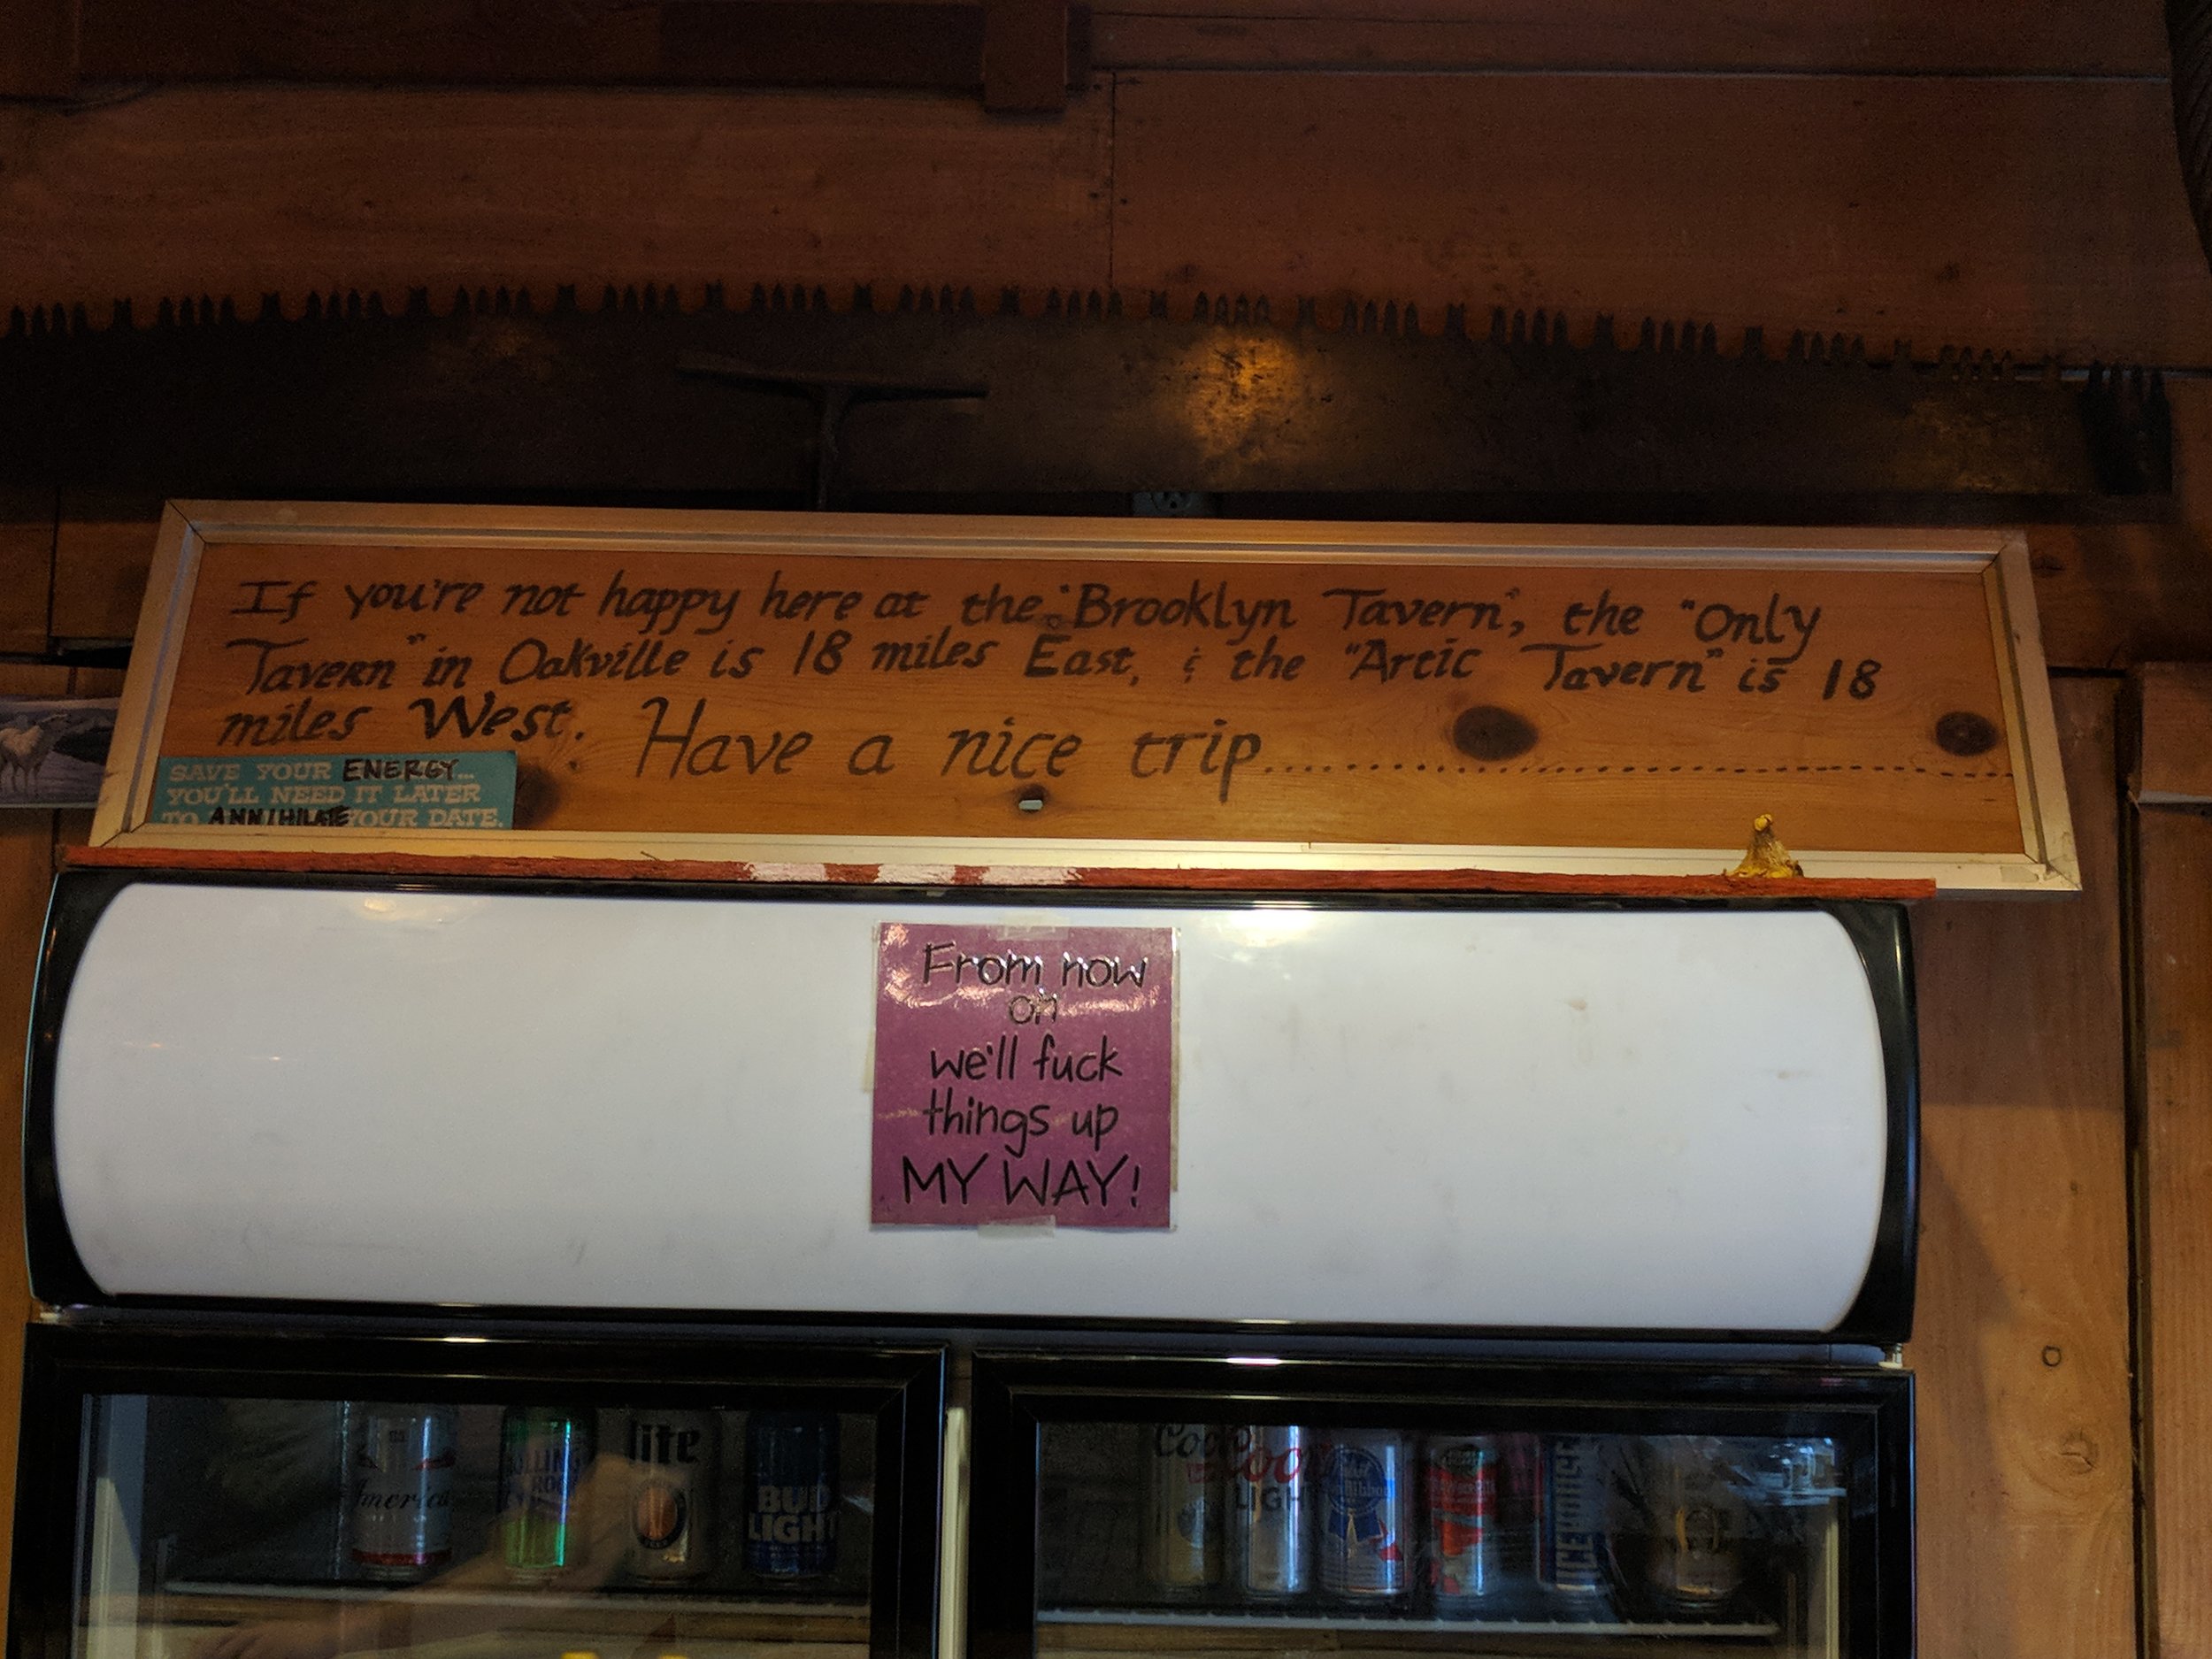 If you're not happy here at the "Brooklyn Tavern", the "Only
Tavern" in Oakville is 18 miles East, & the "Artic Tavern" is 18
miles West. Have a nice trip...............................................
SAVE YOUR ENERGY...
YOU'LL NEED IT LATER
TO ANNIHILATE YOUR DATE.
From now
on
we'll fuck
things up
MY WAY!
America
ROLLING
ROCK
lite
BUD
LIGHT
Coo
Coor
LIGH
Pabst
Ribbon
ICEHOUSE